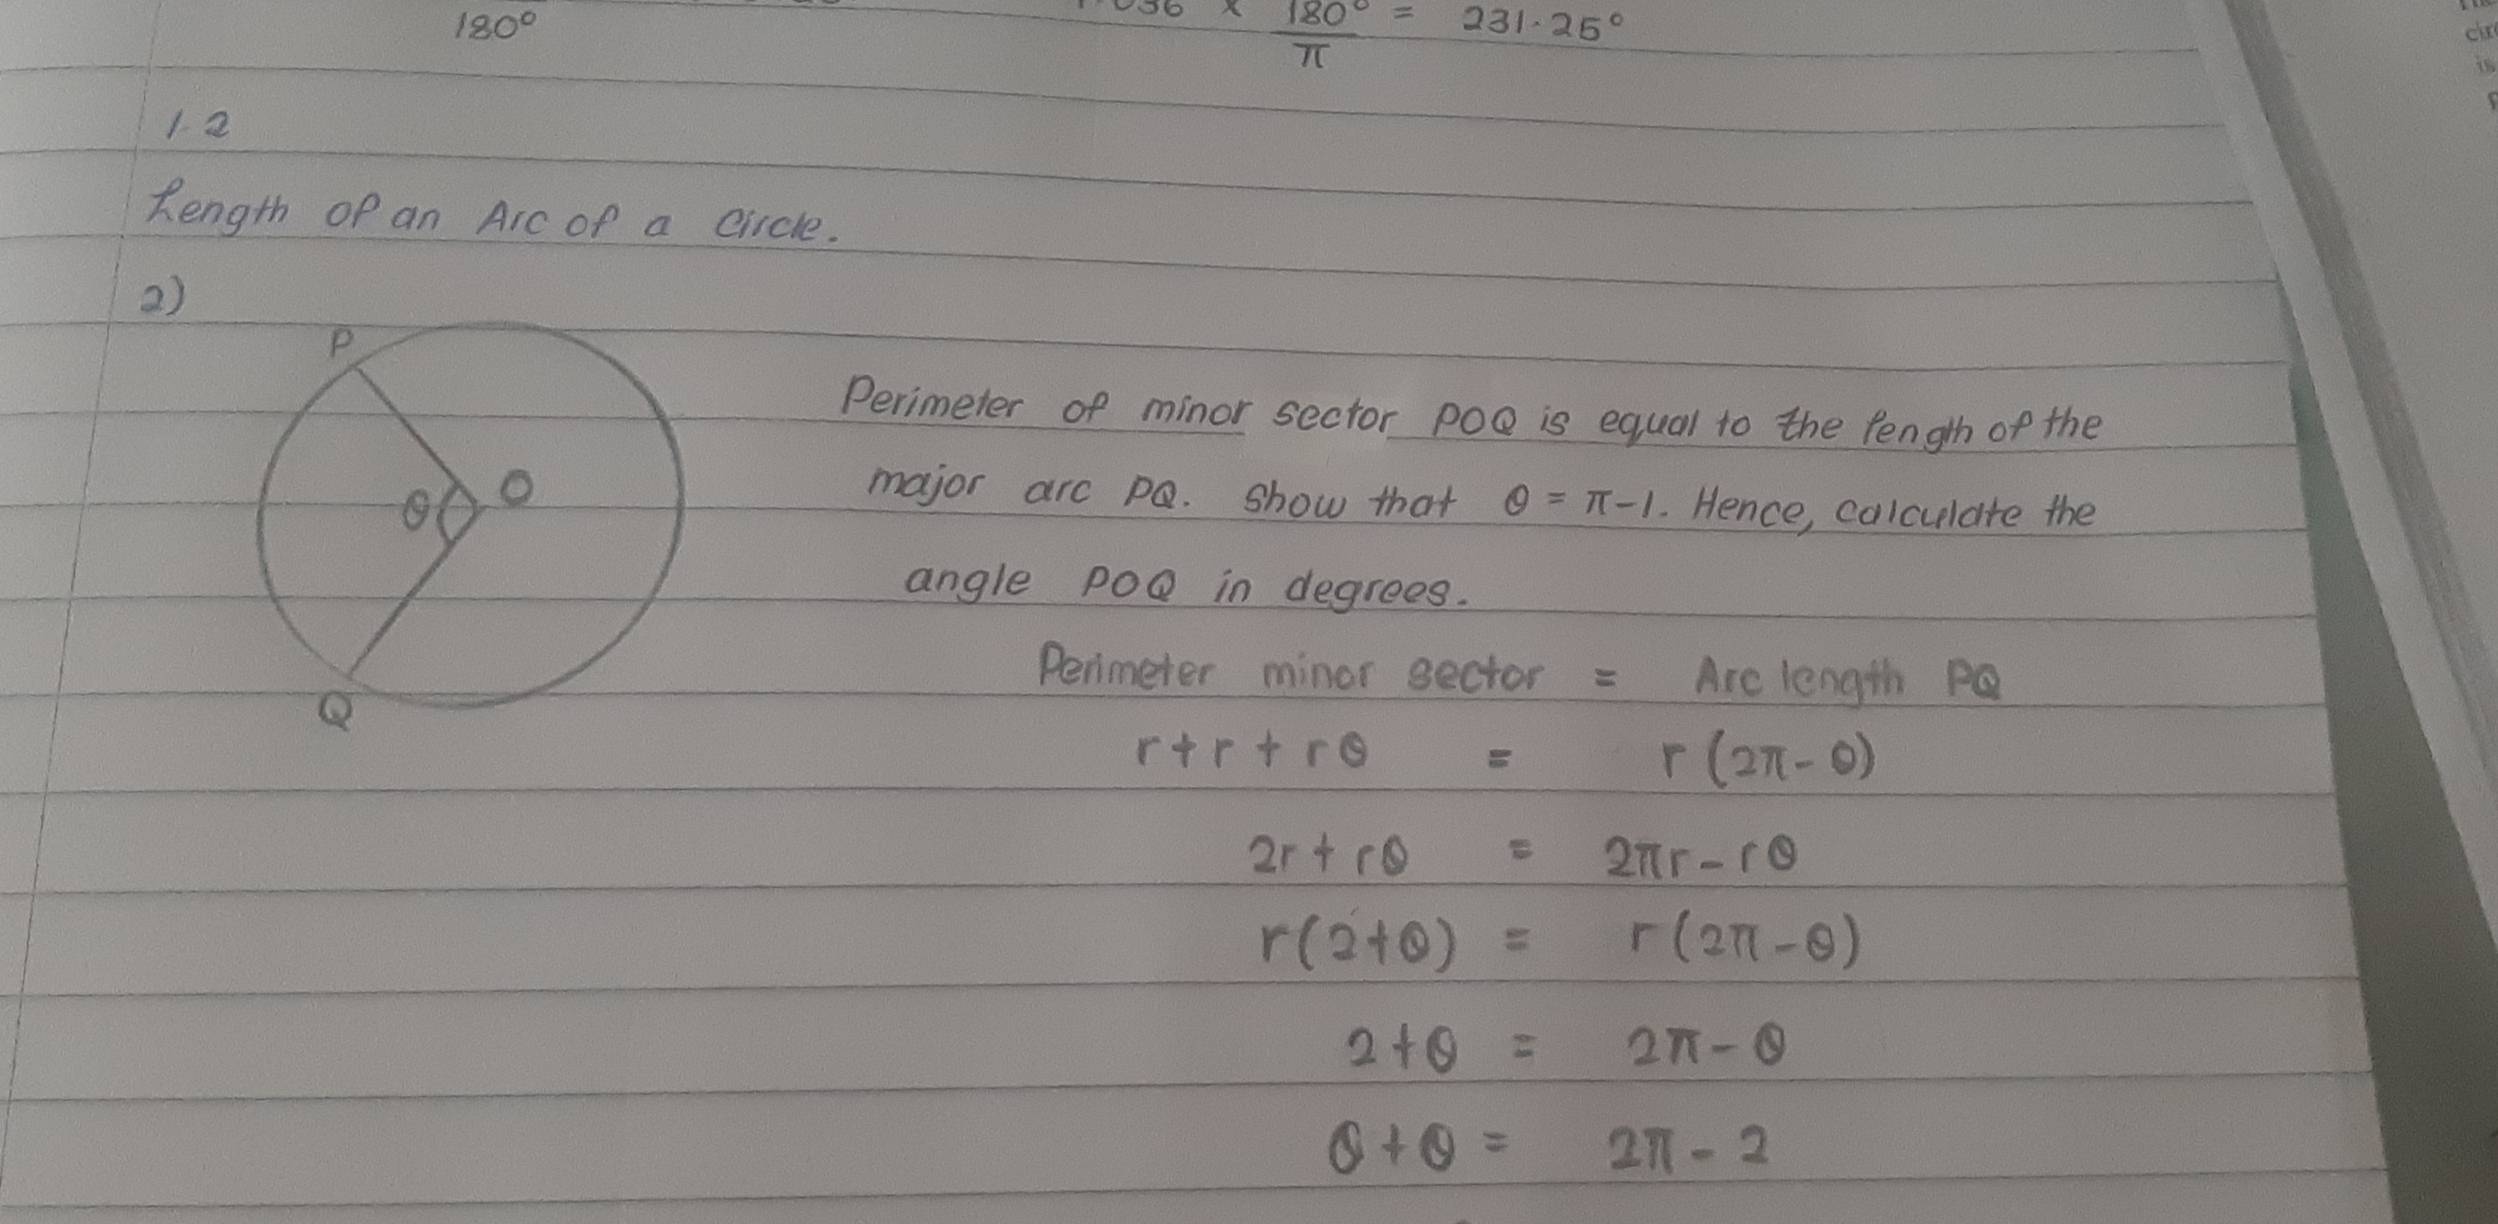 180°
× 180° = 231.25°
π
1.2
Length of an Arc of a circle.
2)
P
O
θ
Q
Perimeter of minor sector POQ is equal to the length of the
major arc PQ. Show that θ = π-1. Hence, calculate the
angle POQ in degrees.
Perimeter minor sector = Arc length PQ
r+r+rθ = r(2π-θ)
2r+rθ = 2πr-rθ
r(2+θ) = r(2π-θ)
2+θ = 2π-θ
θ+θ = 2π-2